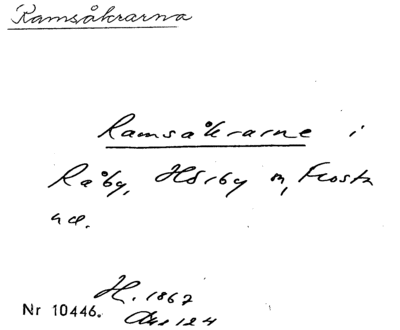 Ramsåkrarna
Ramsåkrarne i
Råby, Hörby m, Frosta
hd.
H. 1867
Nr 10446. Akt 124